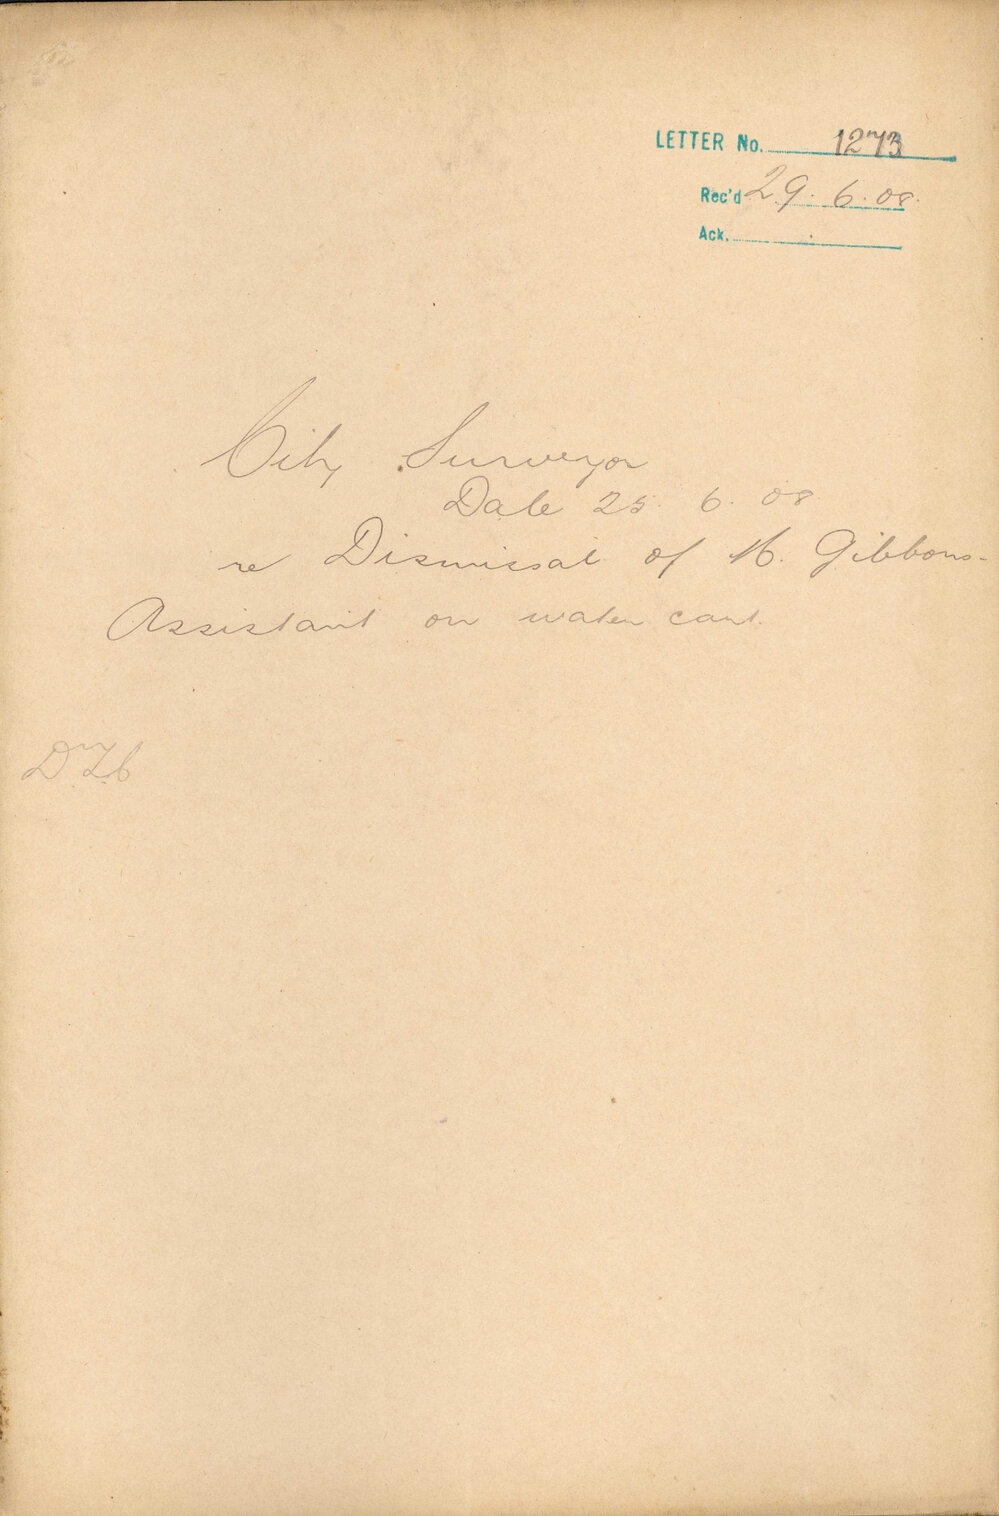 LETTER No. 1273
Rec'd 29. 6. 08.
Ack.
City Surveyor
Date 25. 6. 08
re Dismissal of M. Gibbons-
Assistant on water cart.